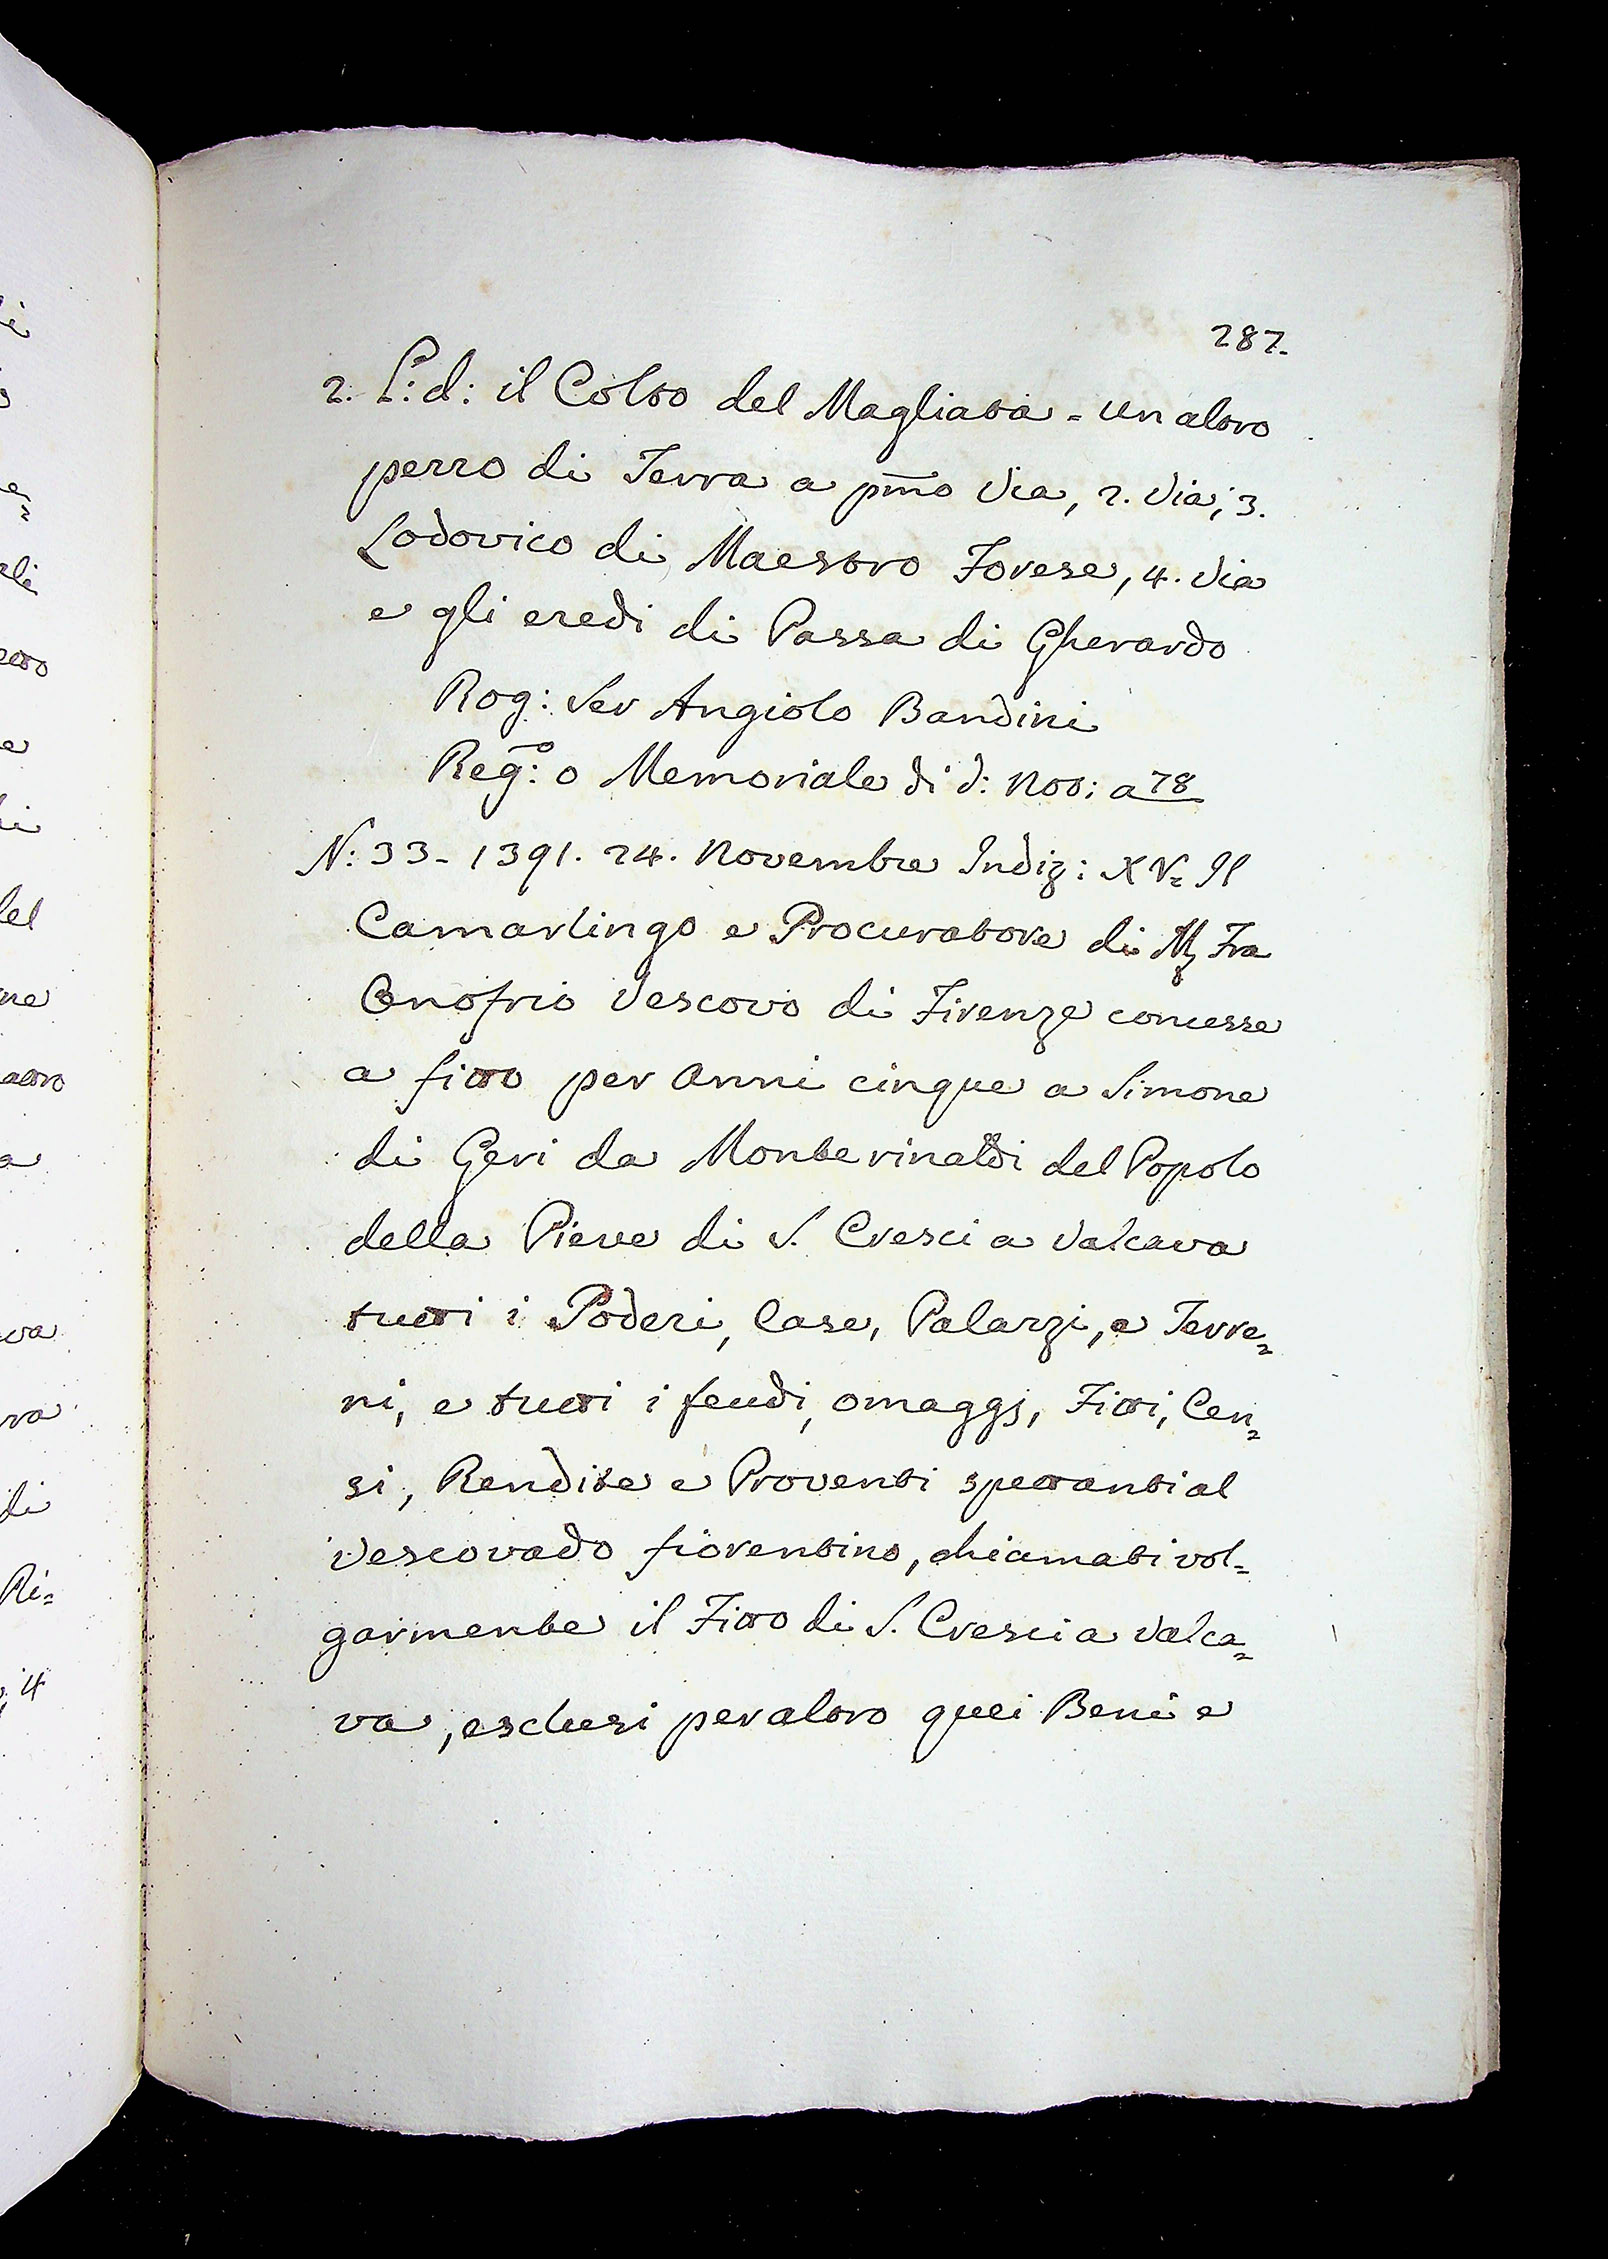 287.
2. L: d: il Colto del Magliata = un altro
pezzo di Terra a pmo Via, 2. Via, 3.
Lodovico di Maestro Forese, 4. Via
e gli eredi di Passa di Gherardo
Rog: Ser Angiolo Bandini
Reg:o o Memoriale di d: Not: a 78
N: 33 - 1391. 24. Novembre Indiz: XV. Il
Camarlingo e Procuratore di M Fra
Onofrio Vescovo di Firenze concesse
a fitto per Anni cinque a Simone
di Geri da Monterinaldi del Popolo
della Pieve di S. Cresci a Valcava
tutti i Poderi, Case, Palazzi, e Terre=
ni, e tutti i feudi, omaggj, Fitti, Cen=
si, Rendite e Proventi spettanti al
Vescovado fiorentino, chiamati vol=
garmente il Fitto di S. Cresci a Valca=
va, esclusi per altro quei Beni e